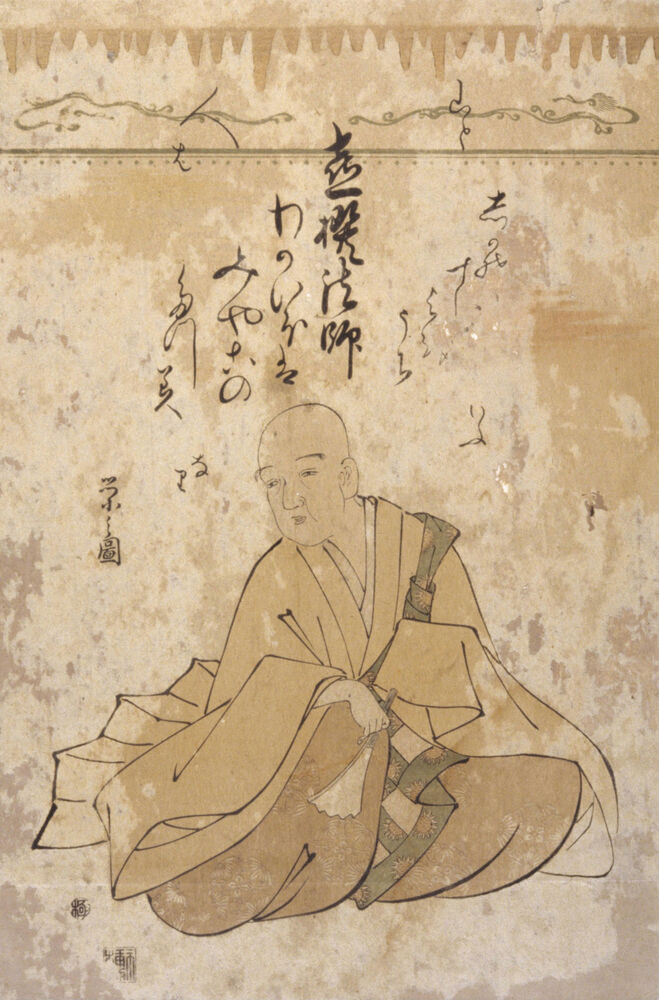 喜撰法師
わかいほは
みやこの
たつ美
志かそ
すむ
よを
うち
山と
人は
いふ
なり
栄之圖
極